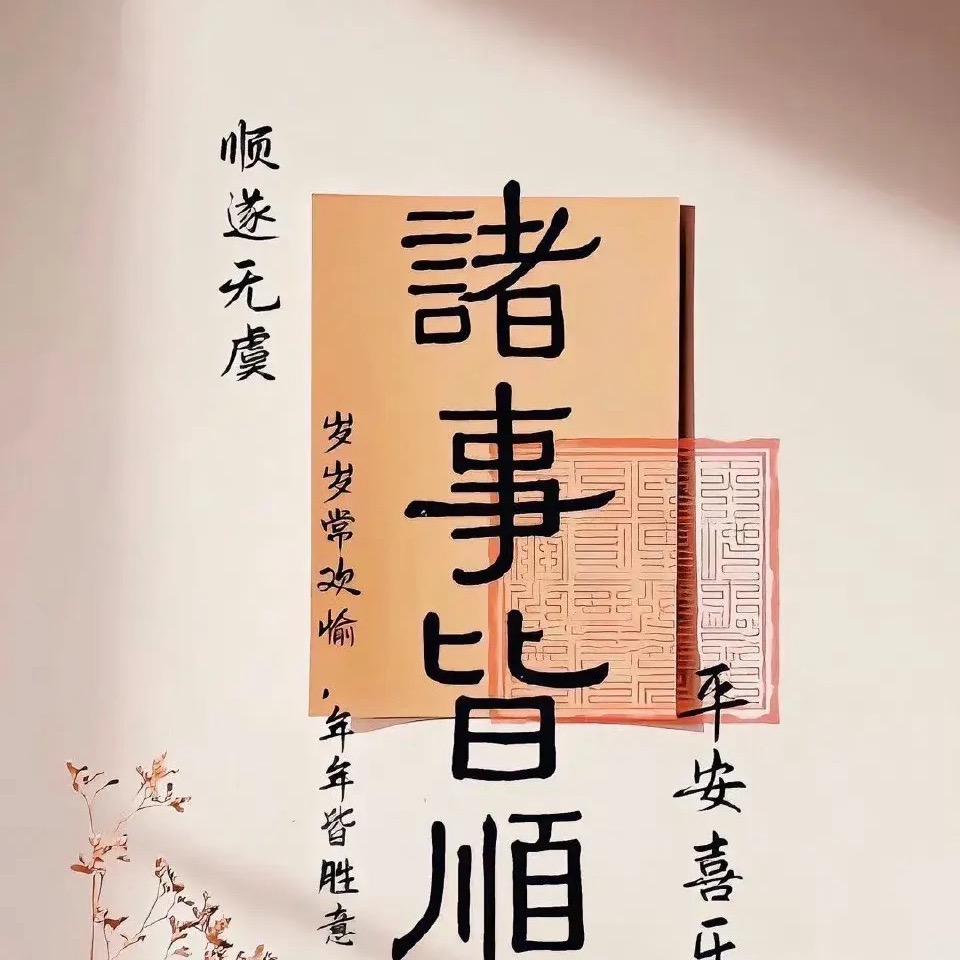 顺遂无虞
諸事皆順
岁岁常欢愉
·年年皆胜意
平安喜乐